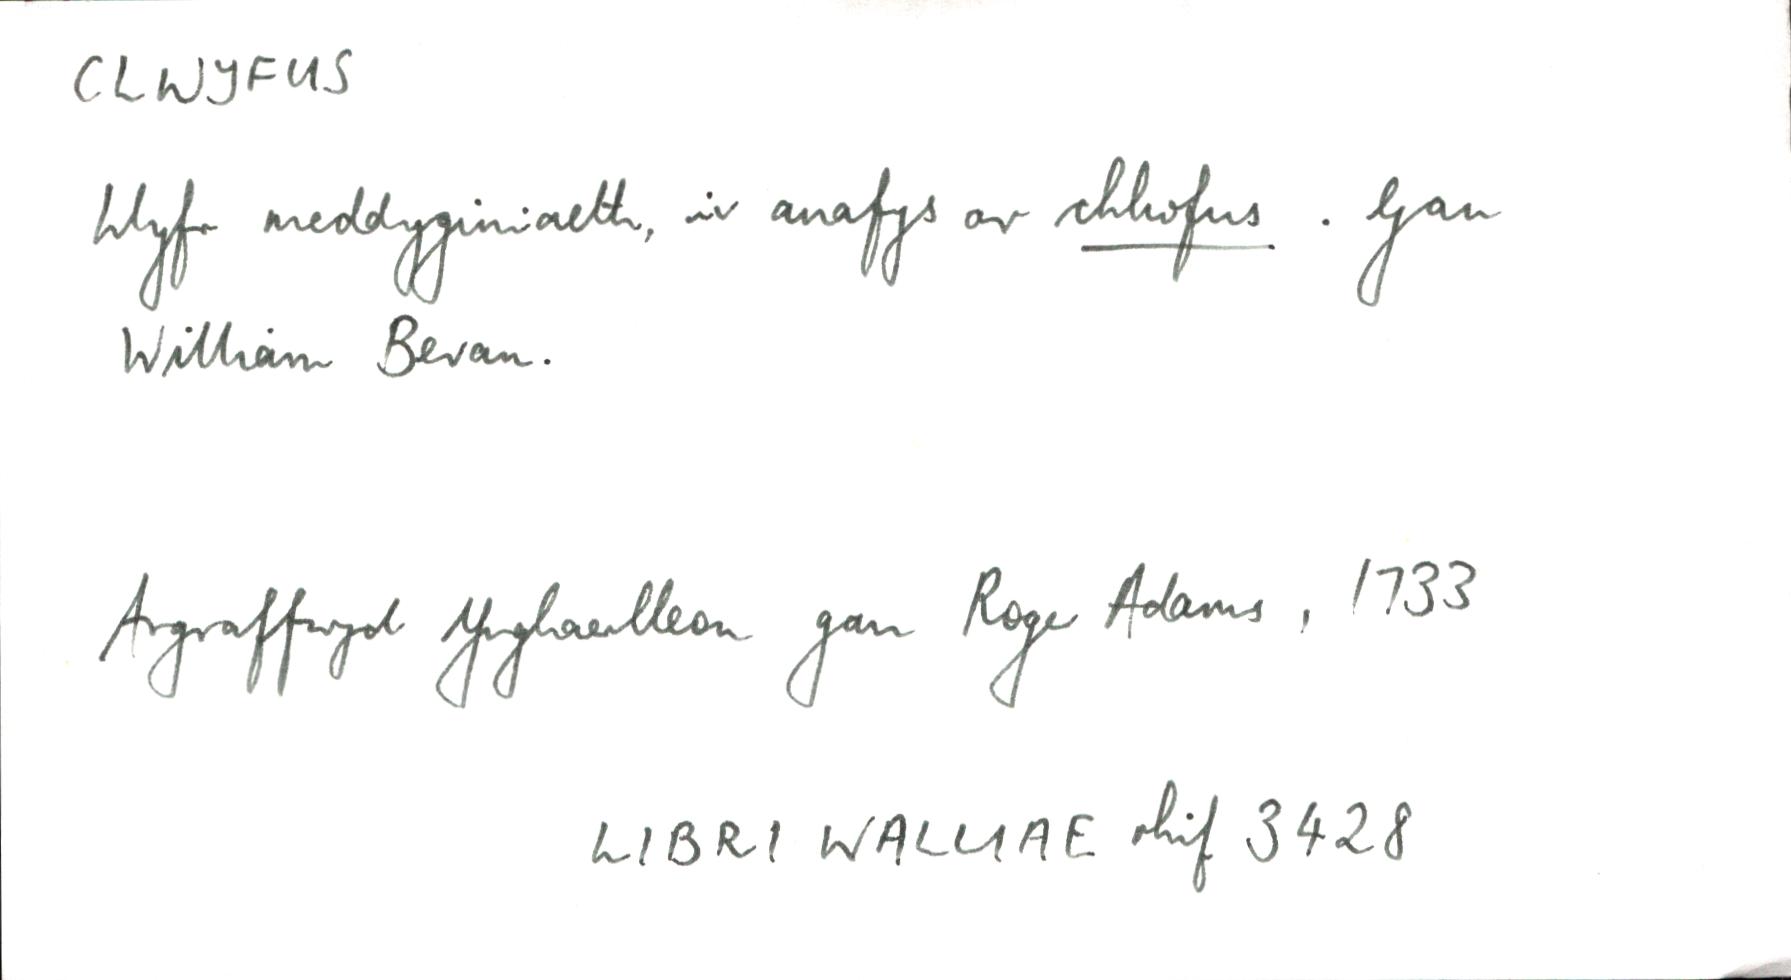 CLWYFUS
Llyfr meddyginiaeth, ir anafys ar chlwfus. Gan
William Bevan.
Argraffwyd Ynghaerlleon gan Roger Adams, 1733
LIBRI WALLIAE rhif 3428